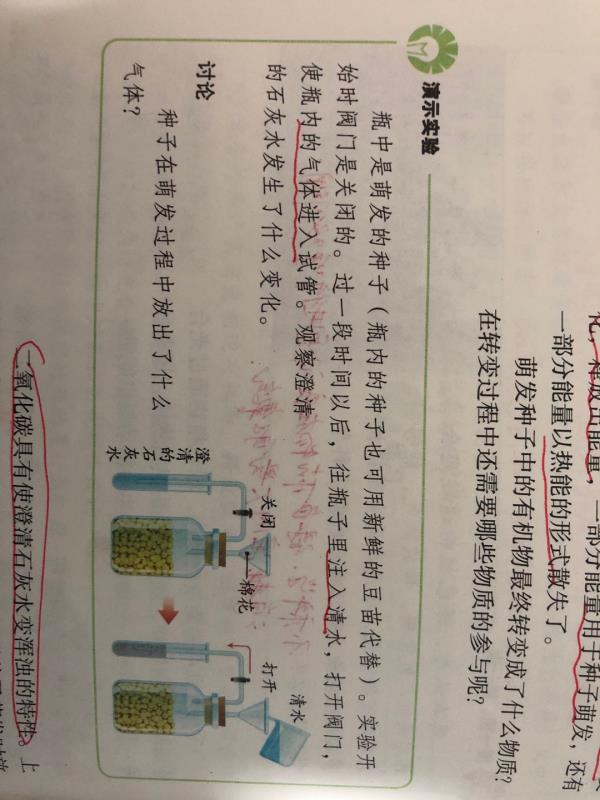 化，释放出能量，一部分能量用于种子萌发，还有
一部分能量以热能的形式散失了。
萌发种子中的有机物最终转变成了什么物质？
在转变过程中还需要哪些物质的参与呢？
演示实验
瓶中是萌发的种子（瓶内的种子也可用新鲜的豆苗代替）。实验开
始时阀门是关闭的。过一段时间以后，往瓶子里注入清水，打开阀门，
使瓶内的气体进入试管。观察澄清
的石灰水发生了什么变化。
讨论
种子在萌发过程中放出了什么
气体？
澄清的石灰水
关闭
棉花
打开
清水
二氧化碳具有使澄清石灰水变浑浊的特性。上